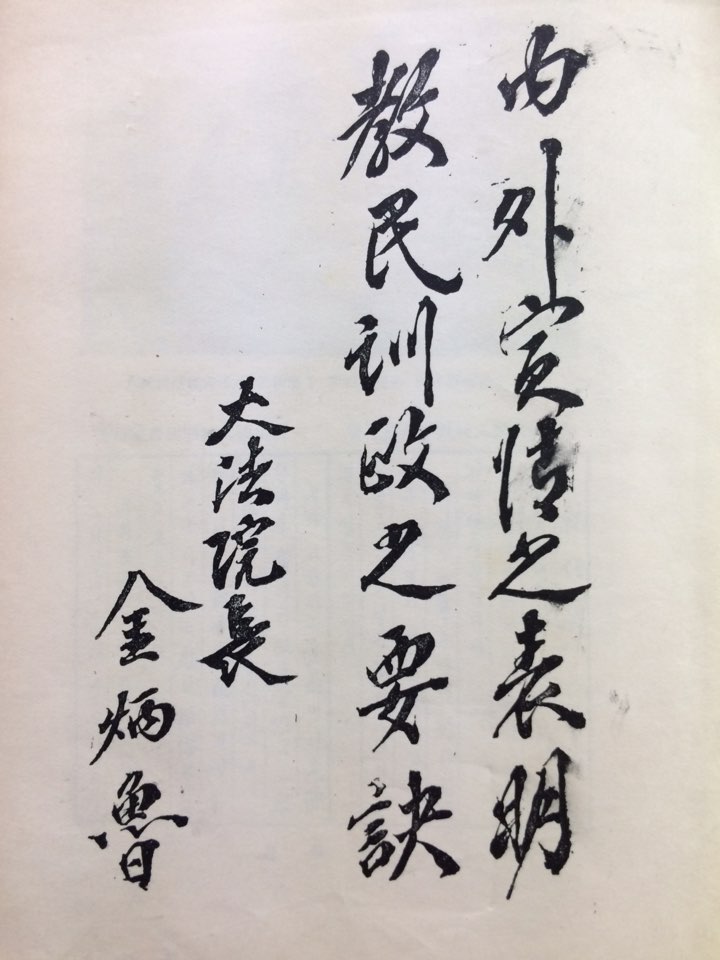 內外實情之表明
敎民訓政之要訣
大法院長
金炳魯